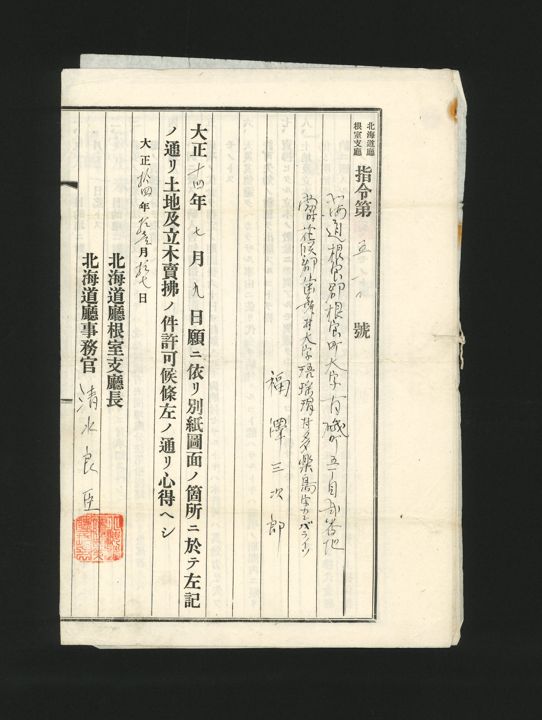 北海道廳
根室支廳
指令第 五一八 號
北海道根室郡根室町大字有磯町五丁目貳番地
福澤三次郎
大正十四年七月九日願ニ依リ別紙圖面ノ箇所ニ於テ左記
ノ通リ土地及立木賣拂ノ件許可候條左ノ通リ心得ヘシ
大正拾四年拾壹月拾七日
北海道廳根室支廳長
北海道廳事務官 清水良臣